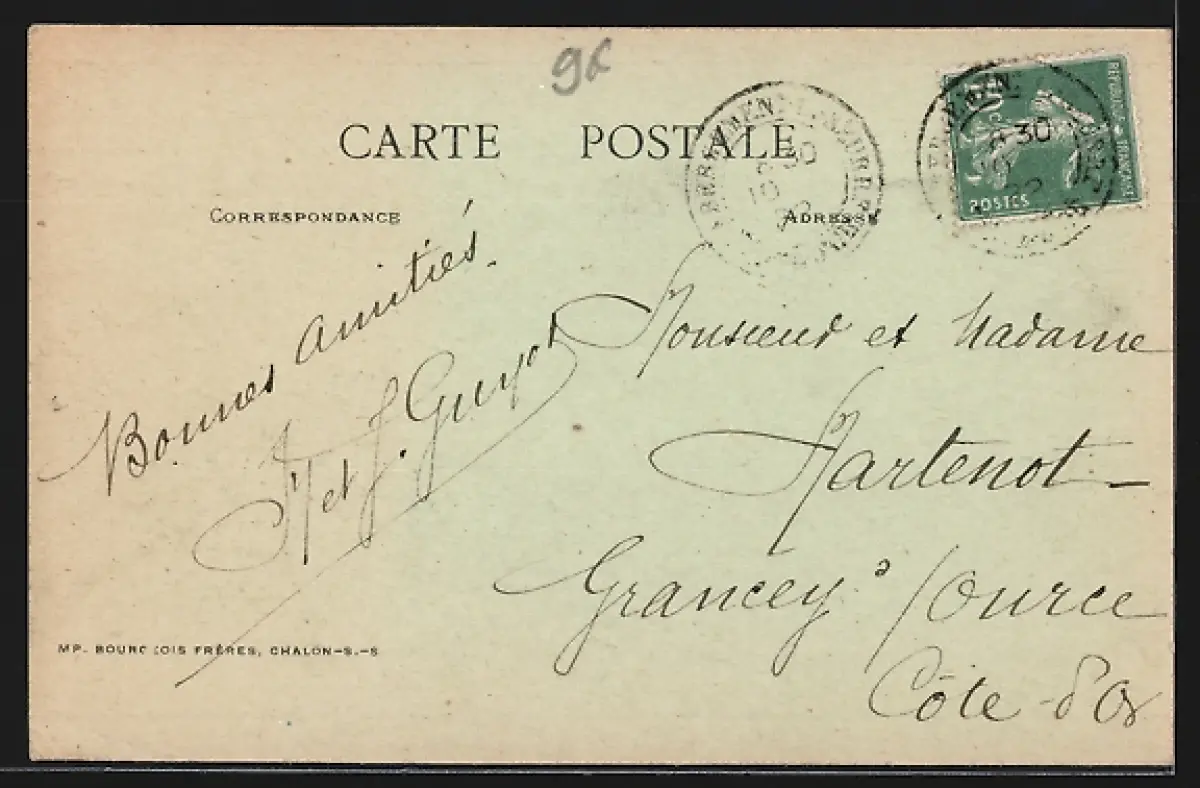 CARTE POSTALE
CORRESPONDANCE
ADRESSE
30
REPUBLIQUE FRANÇAISE
POSTES
30
Bonnes amitiés.
M et J. Guyot
Monsieur et Madame
Martenot
Grancey s/Ource
Côte-d'Or
IMP. BOURGEOIS FRÈRES, CHALON-S.-S